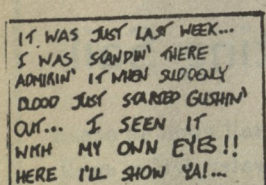 IT WAS JUST LAST WEEK...
I WAS STANDIN' THERE
ADMIRIN' IT WHEN SUDDENLY
BLOOD JUST STARTED GUSHIN'
OUT... I SEEN IT
WITH MY OWN EYES!!
HERE I'LL SHOW YA!...